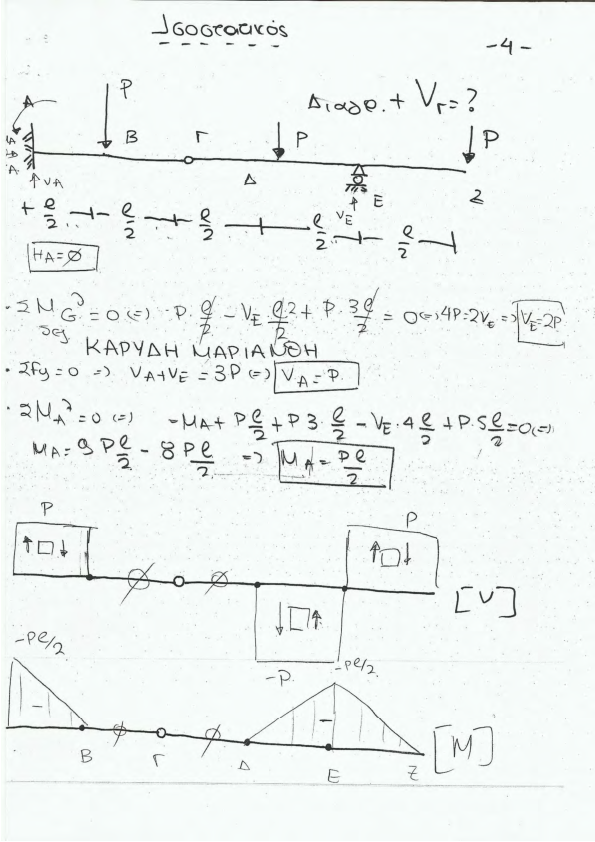 Ισοστατικός
-4-
P
Διαφρ. + V_Γ = ?
A
B Γ P P
Δ E Z
V_A V_E
ℓ/2 ℓ/2 ℓ/2 ℓ/2 ℓ/2
H_A=∅
· ΣM_G=0 (=) -P·ℓ/2 - V_E ℓ/2 2 + P·3ℓ/2 = 0 (=) 4P=2V_E => V_E=2P
δεξ
ΚΑΡΥΔΗ ΜΑΡΙΑΝΘΗ
· ΣFy=0 => V_A+V_E=3P (=) V_A=P.
· ΣM_A=0 (=) -M_A+Pℓ/2+P3·ℓ/2-V_E·4ℓ/2+P·5ℓ/2=0 (=)
M_A=9Pℓ/2-8Pℓ/2 => M_A=Pℓ/2
P P
∅ ∅
[V]
-P
-Pℓ/2 -Pℓ/2
- -
∅ ∅
[M]
B Γ Δ E Z